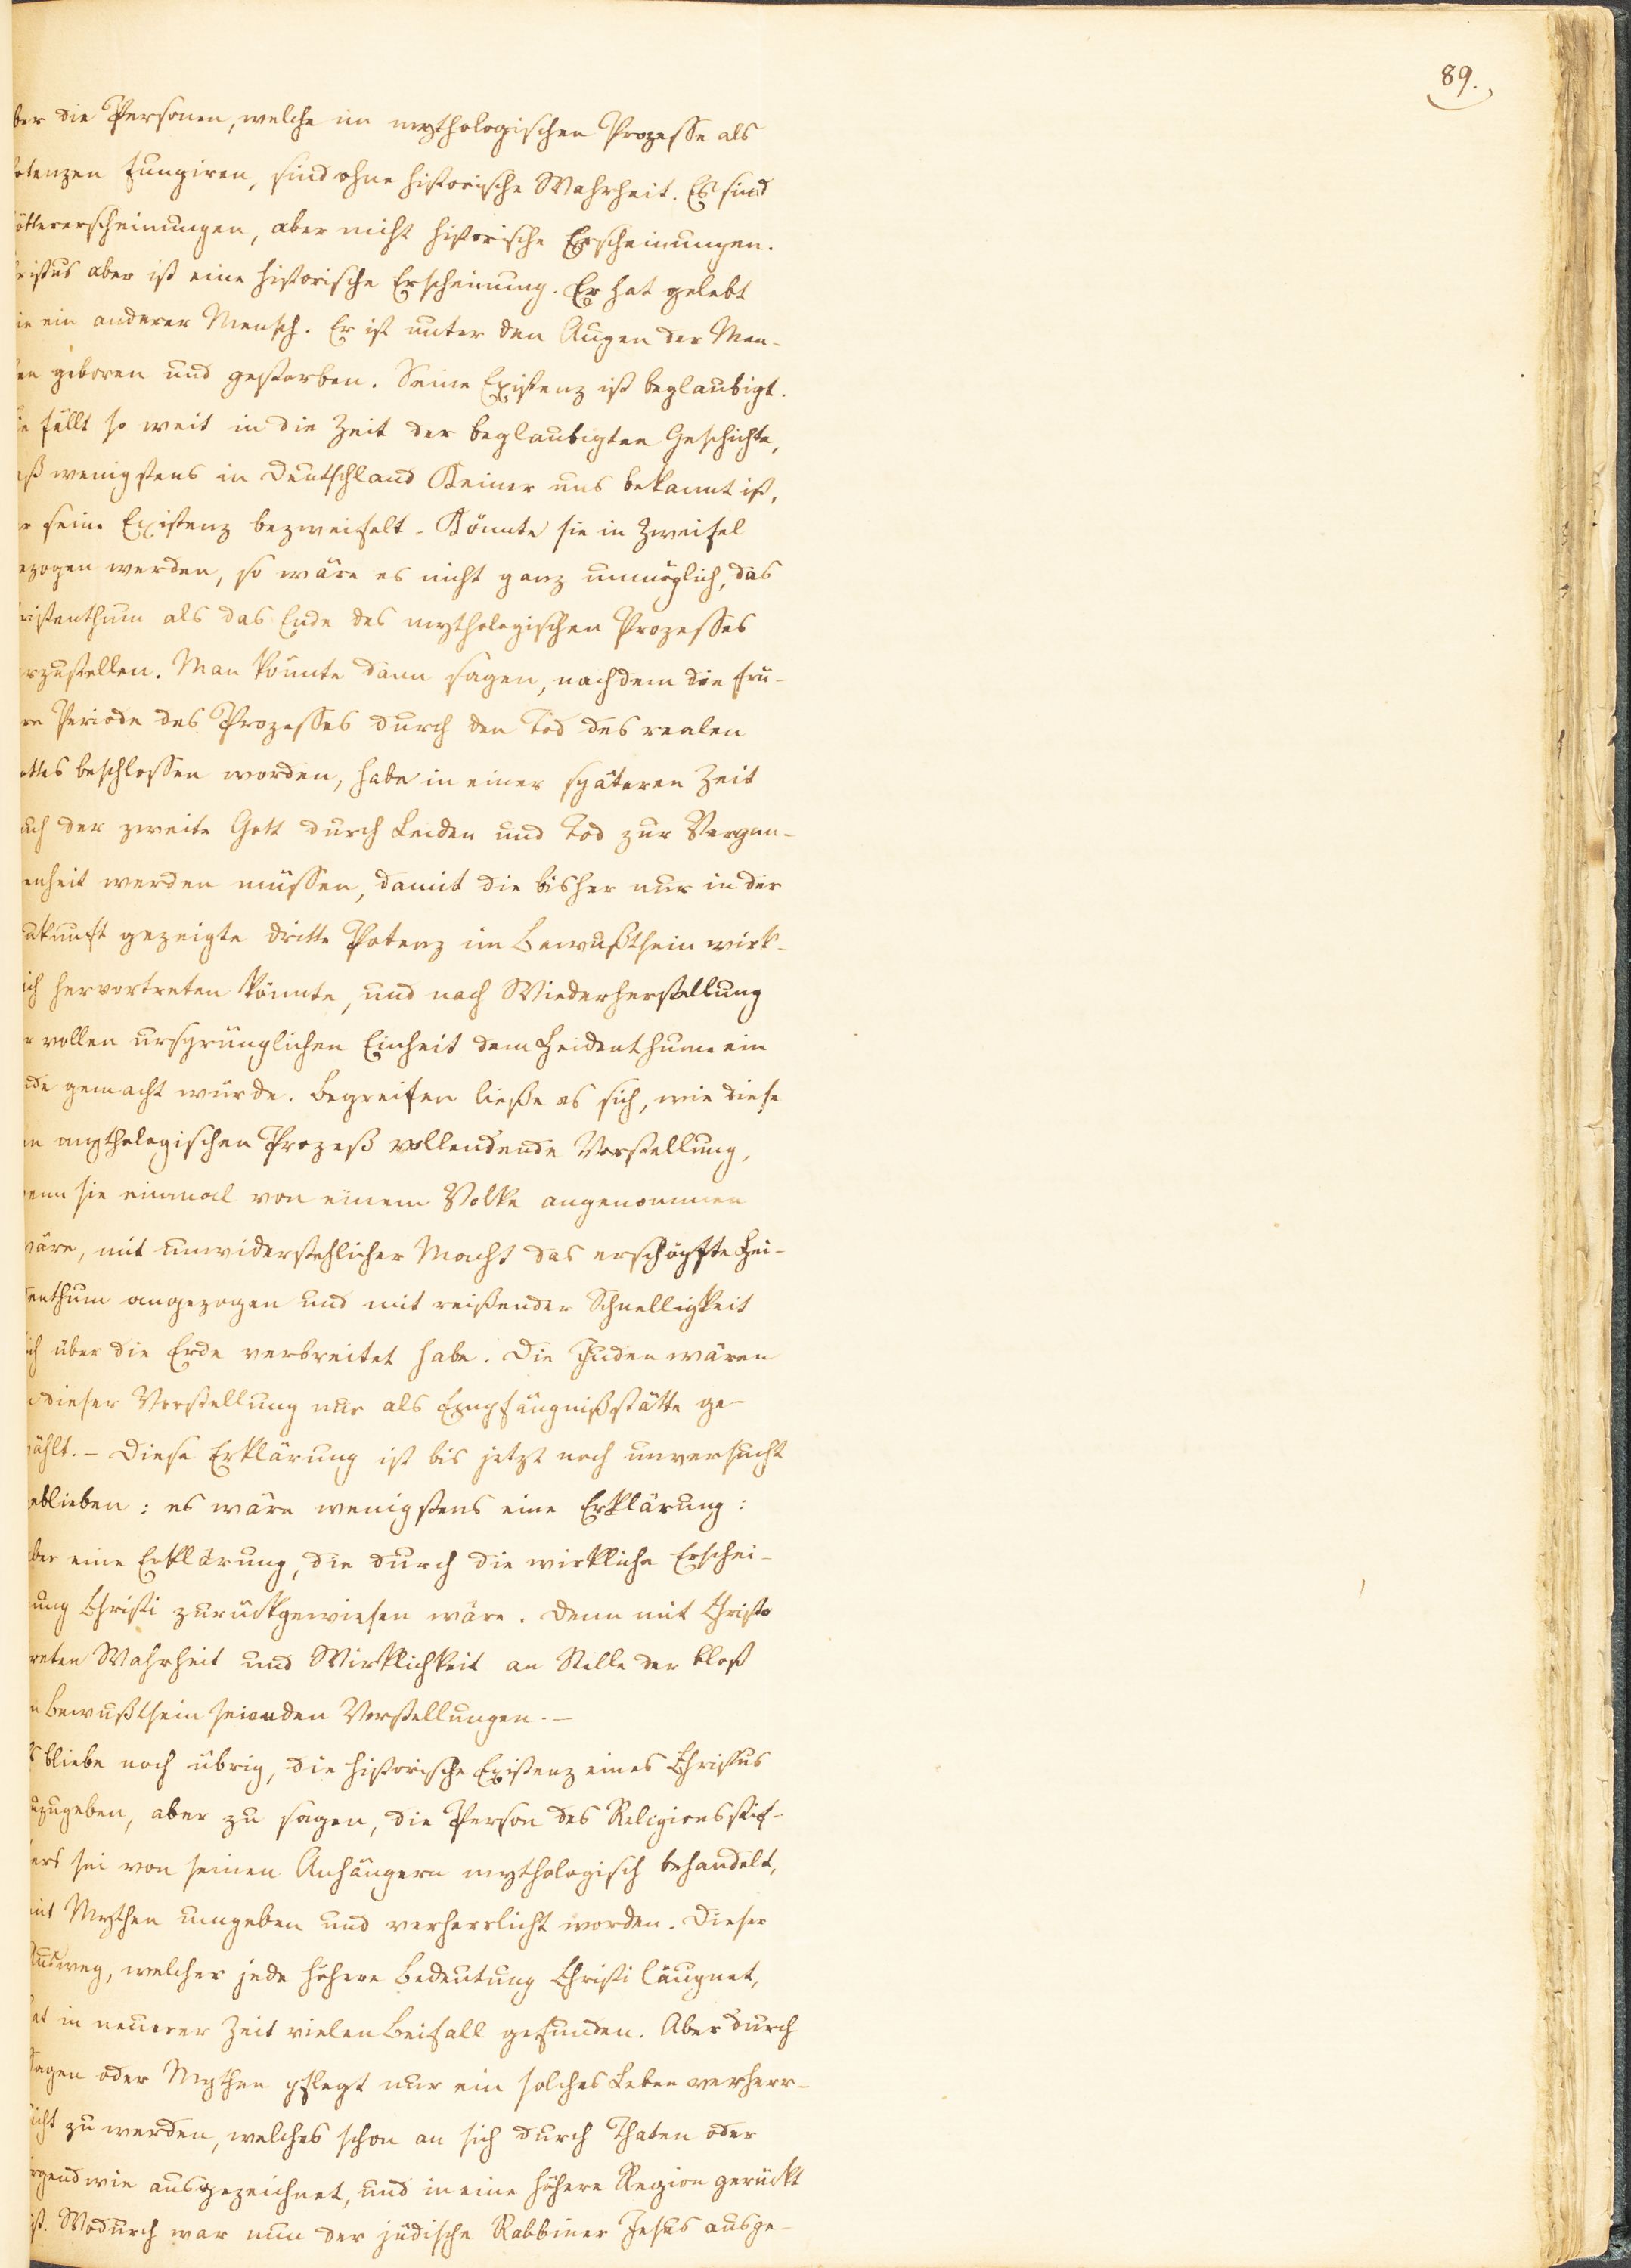 89.
ber die Personen, welche im mythologischen Prozesse als
otenzen fungiren, sind ohne historische Wahrheit. Es sind
öttererscheinungen, aber nicht historische Erscheinungen.
ristus aber ist eine historische Erscheinung. Er hat gelebt
ie ein anderer Mensch. Er ist unter den Augen der Men-
en geboren und gestorben. Seine Existenz ist beglaubigt.
ie fällt so weit in die Zeit der beglaubigten Geschichte,
aß wenigstens in Deutschland Keiner uns bekannt ist,
r seine Existenz bezweifelt. Könnte sie in Zweifel
ezogen werden, so wäre es nicht ganz unmöglich, das
ristenthum als das Ende des mythologischen Prozesses
rzustellen. Man könnte dann sagen, nachdem die frü-
re Periode des Prozesses durch den Tod des realen
ottes beschlossen worden, habe in einer späteren Zeit
uch der zweite Gott durch Leiden und Tod zur Vergan-
enheit werden müssen, damit die bisher nur in der
ukunft gezeigte dritte Potenz im Bewußtsein wirk-
ich hervortreten könnte, und nach Wiederherstellung
r vollen ursprünglichen Einheit dem Heidenthum ein
nde gemacht würde. Begreifen ließe es sich, wie diese
n mythologischen Prozeß vollendende Vorstellung,
enn sie einmal von einem Volke angenommen
wäre, mit unwiderstehlicher Macht das erschöpfte Hei-
enthum angezogen und mit reißender Schnelligkeit
ich über die Erde verbreitet habe. Die Juden wären
dieser Vorstellung nur als Empfängnißstätte ge-
ählt. – Diese Erklärung ist bis jetzt noch unversucht
eblieben: es wäre wenigstens eine Erklärung:
ber eine Erklärung, die durch die wirkliche Erschei-
ung Christi zurückgewiesen wäre. Denn mit Christo
reten Wahrheit und Wirklichkeit an Stelle der bloß
m Bewußtsein seienden Vorstellungen. –
s bliebe noch übrig, die historische Existenz eines Christus
uzugeben, aber zu sagen, die Person des Religionsstif-
ers sei von seinen Anhängern mythologisch behandelt,
mit Mythen umgeben und verherrlicht worden. Dieser
Ausweg, welcher jede höhere Bedeutung Christi läugnet,
at in neuerer Zeit vielen Beifall gefunden. Aber durch
Sagen oder Mythen pflegt nur ein solches Leben verherr-
icht zu werden, welches schon an sich durch Thaten oder
irgendwie ausgezeichnet, und in eine höhere Region gerückt
ist. Wodurch war nun der jüdische Rabbiner Jesus ausge-